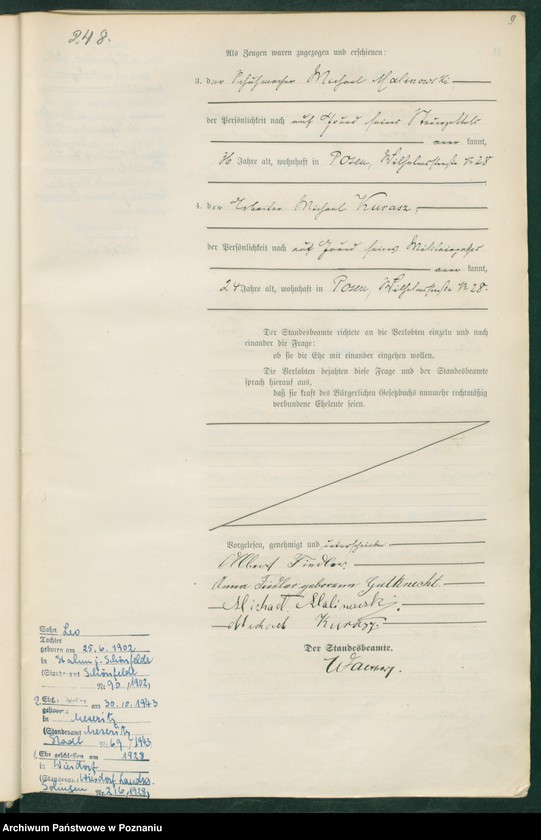 9
248.
Als Zeugen waren zugezogen und erschienen:
3. der Schuhmacher Michael Malinowski
der Persönlichkeit nach auf Grund seines Steuerzettels
aner kannt,
36 Jahre alt, wohnhaft in Posen, Wilhelmstraße № 28
4. der Arbeiter Michael Kurasz,
der Persönlichkeit nach auf Grund seines Militärpasses
aner kannt,
24 Jahre alt, wohnhaft in Posen, Wilhelmstraße № 28.
Der Standesbeamte richtete an die Verlobten einzeln und nach
einander die Frage:
ob sie die Ehe mit einander eingehen wollen.
Die Verlobten bejahten diese Frage und der Standesbeamte
sprach hierauf aus,
daß sie kraft des Bürgerlichen Gesetzbuchs nunmehr rechtmäßig
verbundene Eheleute seien.
Vorgelesen, genehmigt und unterschrieben
Albert Fiedler.
Anna Fiedler geborene Gutknecht.
Michael Malinowski.
Michael Kurasz.
Der Standesbeamte.
Sohn Leo
Tochter
geboren am 25. 6. 1902
in
(Standesamt Schönfeld
Nr. 90/1902)
2. Ehe
am 30. 10. 1943
in Meseritz
(Standesamt Meseritz
Stadt Nr. 69/1943
1. Ehe geschlossen am 1928
in Wiesdorf
(Standesamt Wiesdorf Landkr.
Solingen Nr. 216/1928)
Archiwum Państwowe w Poznaniu